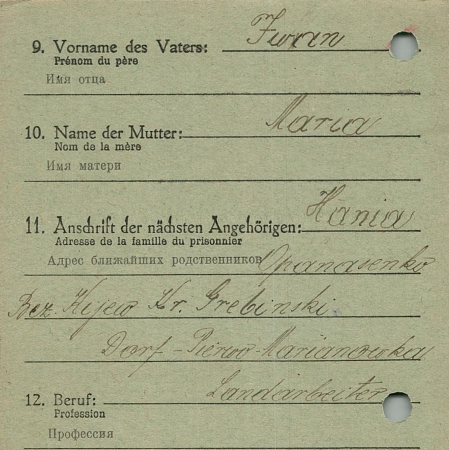 9. Vorname des Vaters: Iwan
Prénom du père
Имя отца
10. Name der Mutter: Maria
Nom de la mère
Имя матери
11. Anschrift der nächsten Angehörigen: Hania
Adresse de la famille du prisonnier
Адрес ближайших родственников Opanasenko
Bez. Kijew Kr. Grebinski
Dorf - Pierwo-Marianowka
Landarbeiter
12. Beruf:
Profession
Профессия